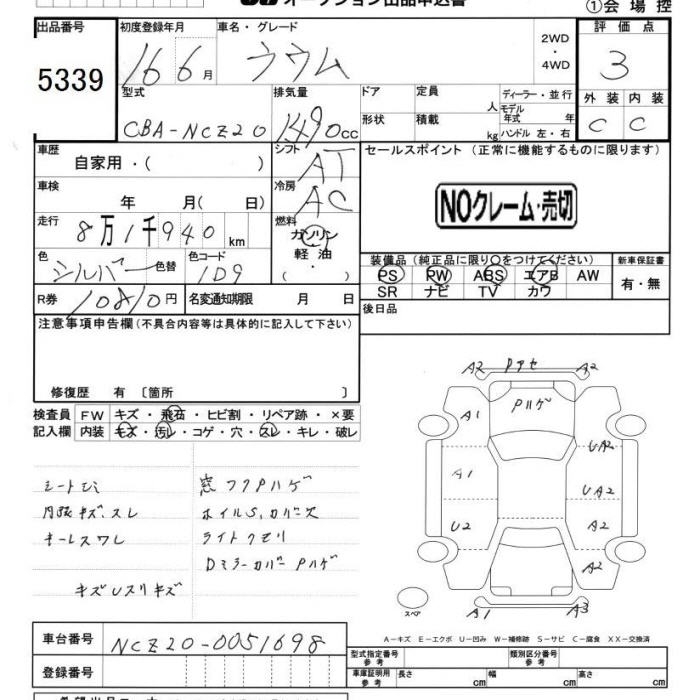 オークション出品申込書
①会場控
出品番号
5339
初度登録年月
16 6月
車名・グレード
ラウム
2WD
・
4WD
評価点
3
外装 内装
C C
型式
CBA-NCZ20
排気量
1490cc
ドア
定員
人
形状
積載
kg
ディーラー・並行
モデル
年式 年
ハンドル 左・右
車歴
自家用・( )
シフト
AT
車検
年 月( 日)
冷房
AC
走行
8万1千940 km
燃料
ガソリン
軽油
( ・ )
色
シルバー 色替
色コード
1D9
R券 10810円
名変通知期限 月 日
セールスポイント(正常に機能するものに限ります)
NOクレーム・売切
装備品(純正品に限り○をつけてください)
PS PW ABS エアB AW
SR ナビ TV カワ
新車保証書
有・無
後日品
注意事項申告欄(不具合内容等は具体的に記入して下さい)
修復歴 有〔箇所 〕
検査員 FW キズ・飛石・ヒビ割・リペア跡・×要
記入欄 内装 キズ・汚レ・コゲ・穴・スレ・キレ・破レ
シートシミ
内張キズ、スレ
キーレスワレ
キズUスリキズ
窓フクPハゲ
ホイルS,カバー欠
ライトクモリ
DミラーカバーPハゲ
A2 Pアセ A2
Pハゲ
A1
UA2
A1
UA2
U2
A2
A2
スペア
A1 A3
A-キズ E-エクボ U-凹み W-補修跡 S-サビ C-腐食 XX-交換済
車台番号 NCZ20-0051698
登録番号
型式指定番号
参考
類別区分番号
参考
車庫証明用
参考
長さ cm
幅 cm
高さ cm